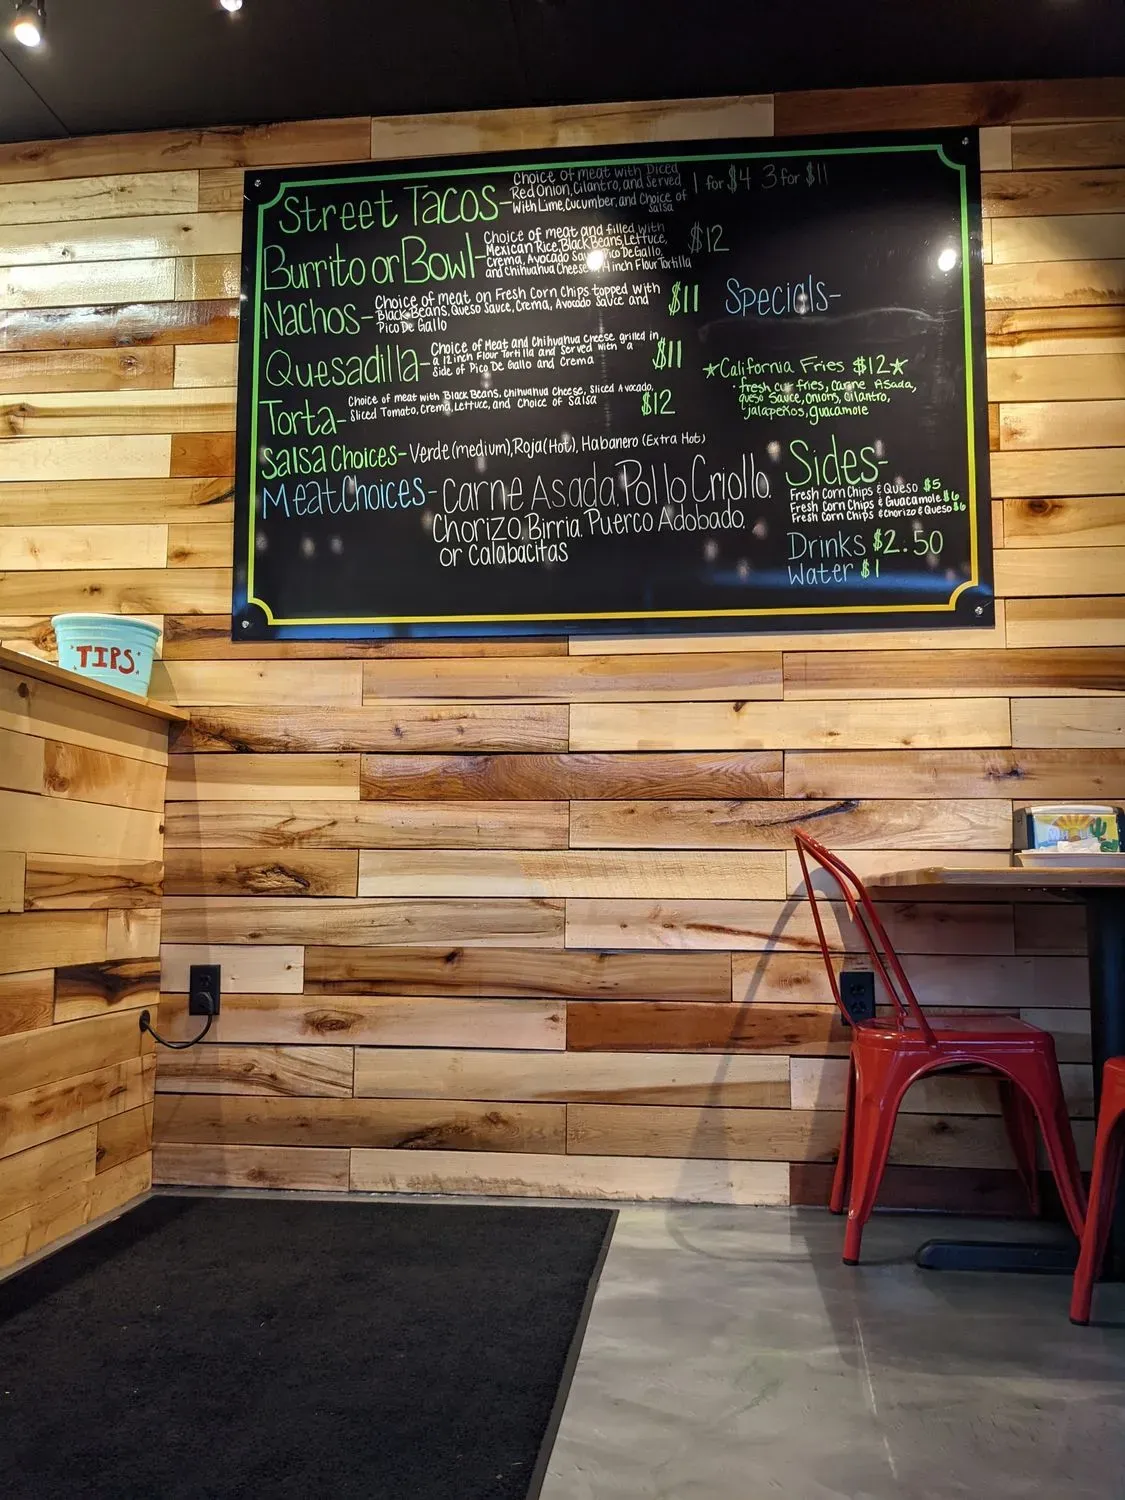 Street Tacos- Choice of meat with Diced
Red Onion, Cilantro, and Served
With Lime, Cucumber, and Choice of
Salsa
1 for $4 3 for $11
Burrito or Bowl- Choice of meat and filled with
Mexican Rice, Black Beans, Lettuce,
Crema, Avocado Pico De Gallo,
and Chihuahua Cheese inch Flour Tortilla
$12
Nachos- Choice of meat on Fresh Corn Chips topped with
Black Beans, Queso Sauce, Crema, Avocado Sauce and
Pico De Gallo
$11
Quesadilla- Choice of Meat and Chihuahua Cheese grilled in
a 12 inch Flour Tortilla and Served with a
Side of Pico De Gallo and Crema
$11
Torta- Choice of meat with Black Beans, Chihuahua Cheese, Sliced Avocado,
Sliced Tomato, Crema, Lettuce, and Choice of Salsa
$12
Salsa Choices- Verde (medium), Roja (Hot), Habanero (Extra Hot)
Meat Choices- Carne Asada, Pollo Criollo,
Chorizo, Birria, Puerco Adobado,
or Calabacitas
Specials-
★California Fries $12★
fresh cut fries, carne Asada,
queso Sauce, onions, cilantro,
jalapeños, guacamole
Sides-
Fresh Corn Chips & Queso $5
Fresh Corn Chips & Guacamole $6
Fresh Corn Chips & Chorizo & Queso $6
Drinks $2.50
Water $1
TIPS